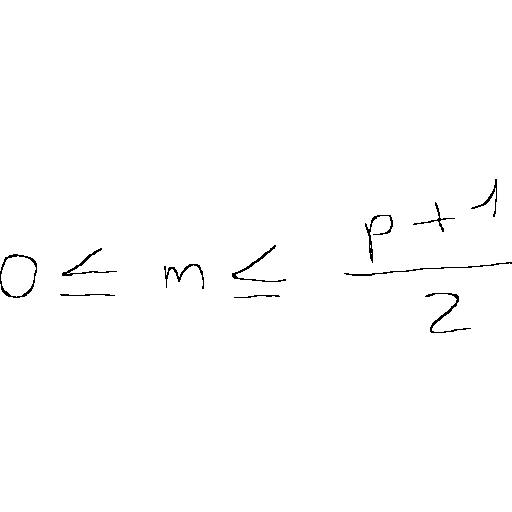 0 ≤ m ≤ \frac{p+1}{2}